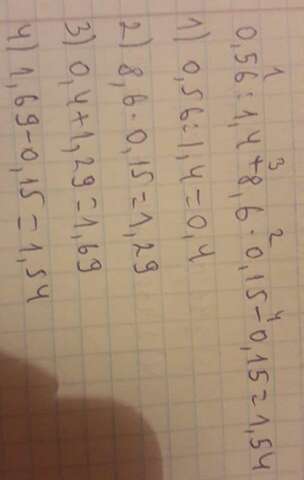 0,56:1,4+8,6·0,15-0,15=1,54
1) 0,56:1,4=0,4
2) 8,6·0,15=1,29
3) 0,4+1,29=1,69
4) 1,69-0,15=1,54